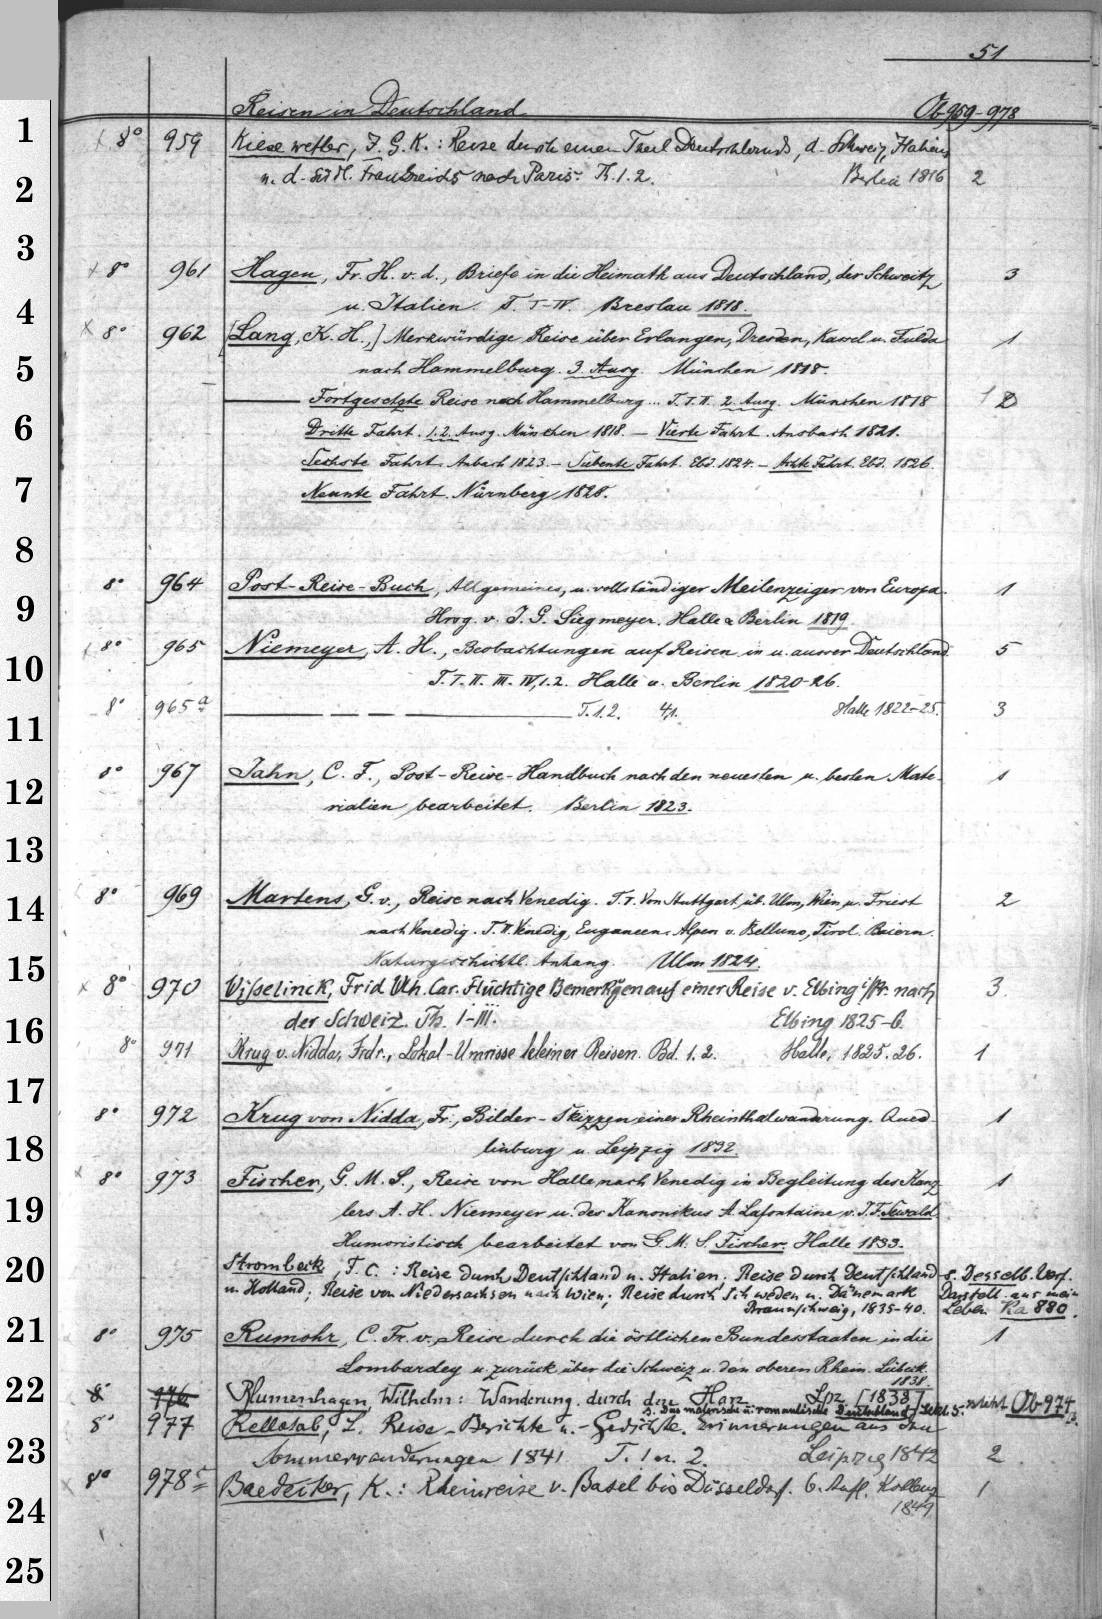 51
Reisen in Deutschland Ob 959-978
1
8° 959 Kiesewetter, J. G. K.: Reise durch einen Theil Deutschlands, d. Schweiz, Italiens
2
u. d. südl. Frankreichs nach Paris. Th. 1.2. Berlin 1816 2
3
8° 961 Hagen, Fr. H. v. d., Briefe in die Heimath aus Deutschland, der Schweitz 3
4
u. Italien. T. I-IV. Breslau 1818.
8° 962 [Lang, K. H.,] Merkwürdige Reise über Erlangen, Dresden, Kassel u. Fulda 1
5
nach Hammelburg. 3. Ausg. München 1818.
— Fortgesetzte Reise nach Hammelburg... T. I. II. 2. Ausg. München 1818
6
Dritte Fahrt. 1.2. Ausg. München 1818. — Vierte Fahrt. Ansbach 1821.
Sechste Fahrt. Anbach 1823. — Siebente Fahrt. Ebd. 1824. — Achte Fahrt. Ebd. 1826.
7
Neunte Fahrt. Nürnberg 1828.
8
8° 964 Post-Reise-Buch, Allgemeines, u. vollständiger Meilenzeiger von Europa. 1
9
Hrsg. v. J. G. Siegmeyer. Halle & Berlin 1819.
8° 965 Niemeyer, A. H., Beobachtungen auf Reisen in u. ausser Deutschland. 5
10
T. I. II. III. IV,1.2. Halle u. Berlin 1820-26.
8° 965a — — — — T. 1.2. 4,1. Halle 1822-25. 3
11
8° 967 Jahn, C. F., Post-Reise-Handbuch nach den neuesten u. besten Mate- 1
12
rialien bearbeitet. Berlin 1823.
13
8° 969 Martens, G. v., Reise nach Venedig. T. I. Von Stuttgart üb. Ulm, Wien, u. Triest 2
14
nach Venedig. T. II. Venedig, Euganeen, Alpen v. Belluno, Tirol. Baiern.
Naturgeschichtl. Anhang. Ulm 1824.
15
8° 970 Wisselinck, Frid. Wlh. Car. Flüchtige Bemerkgen auf einer Reise v. Elbing i/Pr. nach 3.
der Schweiz. Th. I-III. Elbing 1825-6.
16
8° 971 Krug v. Nidda, Frdr., Lokal-Umrisse kleiner Reisen. Bd. 1.2. Halle, 1825.26. 1
17
8° 972 Krug von Nidda, Fr., Bilder-Skizzen einer Rheinthalwanderung. Qued- 1
18
linburg u. Leipzig 1832.
8° 973 Fischer, G. M. S., Reise von Halle nach Venedig in Begleitung des Kanz- 1
19
lers A. H. Niemeyer u. des Kanonikus A. Lafontaine v. J. F. Sewald.
Humoristisch bearbeitet von G. M. S. Fischer. Halle 1833.
20
Strombeck, F. C.: Reise durch Deutschland u. Italien; Reise durch Deutschland s. Desselb. Verf.
u. Holland; Reise von Niedersachsen nach Wien; Reise durch Schweden u. Dänemark Darstell. aus mein
Braunschweig, 1835-40. Leben Ka 880.
21
8° 975 Rumohr, C. Fr. v., Reise durch die östlichen Bundesstaaten in die 1
Lombardey u. zurück über die Schweiz u. den oberen Rhein. Lübeck
1838.
22
8° 976 Blumenhagen, Wilhelm: Wanderung durch den Harz Lpz [1838]
s. Das malerische u. romantische Deutschland, Sekt. 5. steht Ob 974
8° 977 Rellstab, L. Reise-Berichte u. -Gedichte. Erinnerungen aus den
23
Sommerwanderungen 1841. T. 1 u. 2. Leipzig 1842 2
8° 978c Baedeker, K.: Rheinreise v. Basel bis Düsseldorf. 6. Aufl. Koblenz 1
24
1849.
25